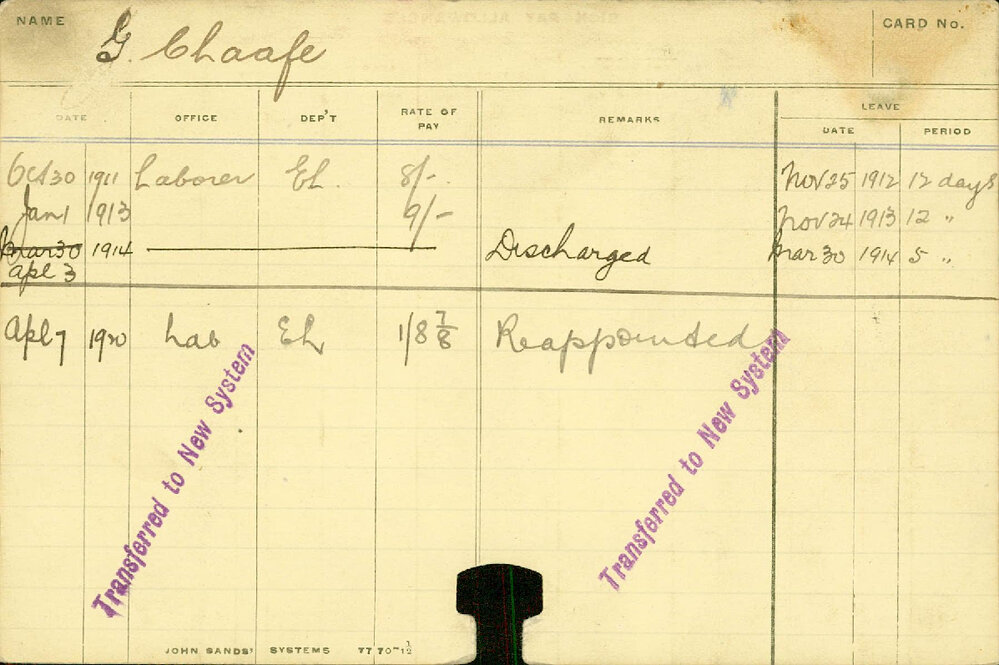 NAME G. Chaafe CARD No.
LEAVE
DATE OFFICE DEP'T RATE OF PAY REMARKS DATE PERIOD
Oct 30 1911 Laborer El. 8/-. Nov 25 1912 12 days
Jan 1 1913 9/- Nov 24 1913 12 "
Mar 30 1914 Discharged Mar 30 1914 5 "
Apl 3
Apl 7 1920 Lab El 1/8 7/8 Reappointed
Transferred to New System
Transferred to New System
JOHN SANDS' SYSTEMS 77 70-1/12